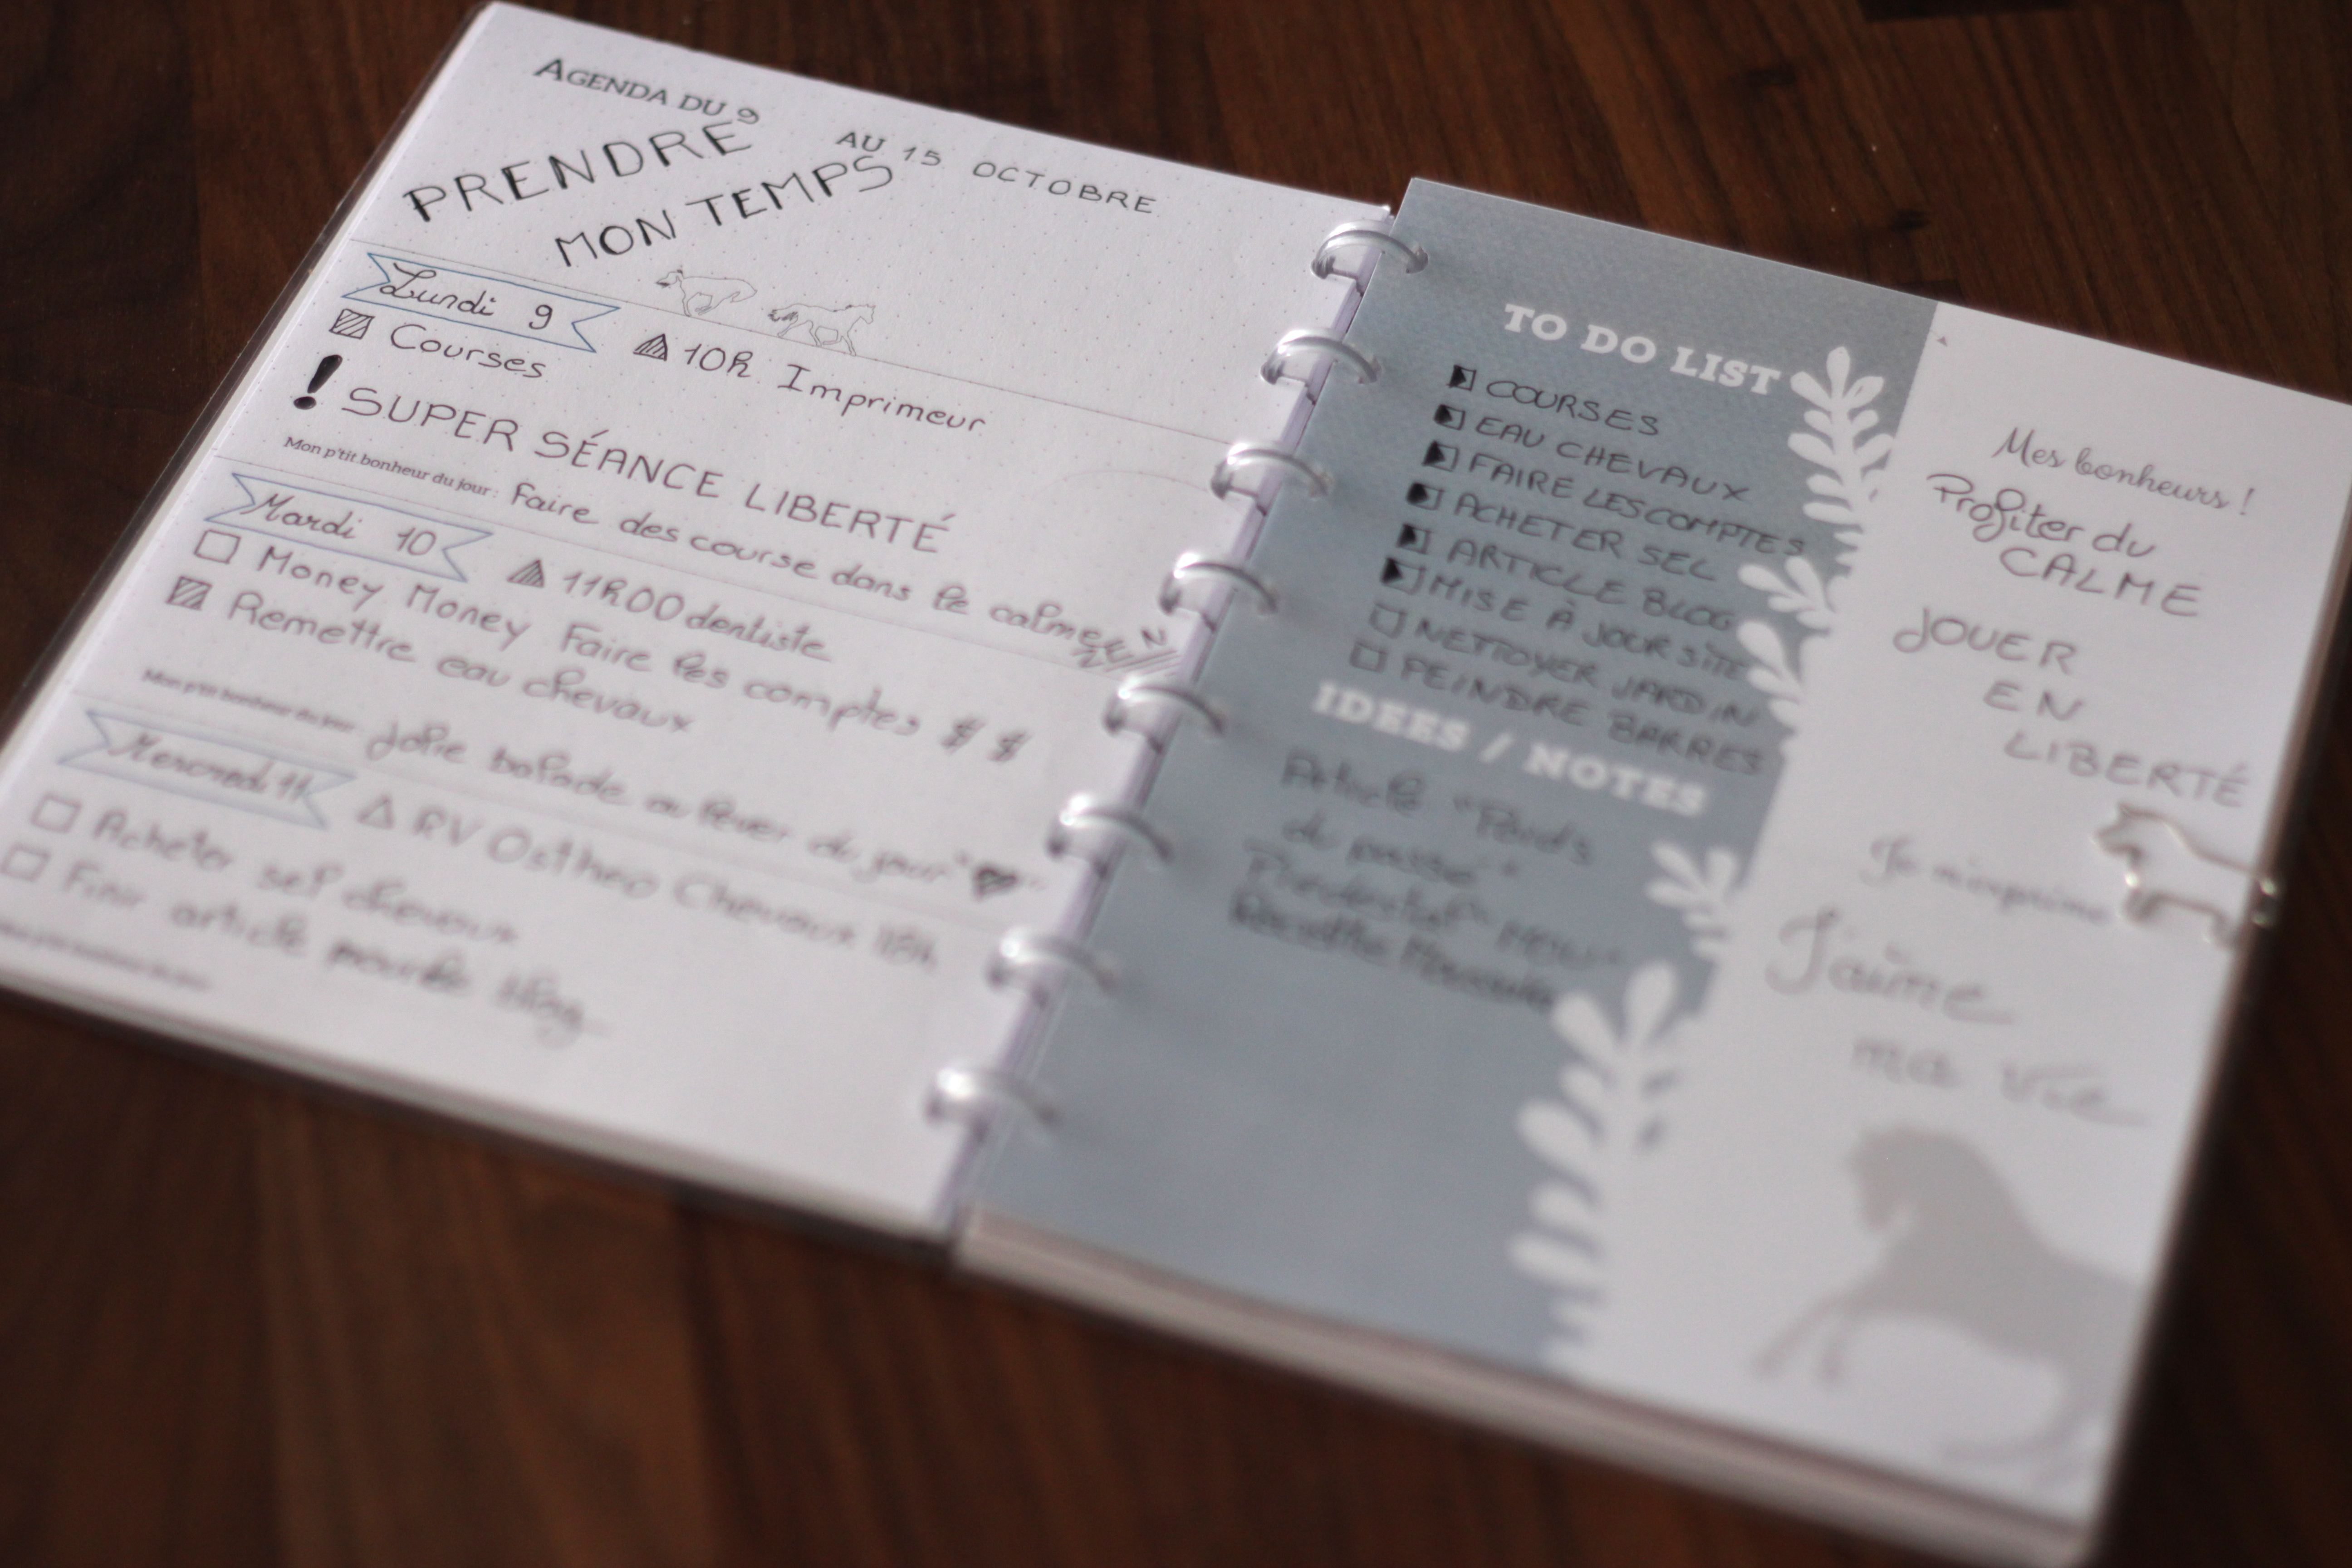 AGENDA DU 9 AU 15 OCTOBRE
PRENDRE
MON TEMPS
Lundi 9
Courses
10h Imprimeur
! SUPER SÉANCE LIBERTÉ
Mon p'tit bonheur du jour : Faire des course dans le calme ZEN
Mardi 10
11h00 dentiste
Money Money Faire les comptes $ $
Remettre eau chevaux
Mon p'tit bonheur du jour : Jolie balade au lever du jour
Mercredi 11
RV Ostheo Chevaux 18h
Acheter sel chevaux
Finir article pour le blog
Mon p'tit bonheur du jour
TO DO LIST
COURSES
EAU CHEVAUX
FAIRE LES COMPTES
ACHETER SEL
ARTICLE BLOG
MISE À JOUR SITE
NETTOYER JARDIN
PEINDRE BARRES
IDEES / NOTES
Article "Poids
du passé"
Mes bonheurs !
Profiter du
CALME
JOUER
EN
LIBERTÉ
Je m'exprime
J'aime
ma vie